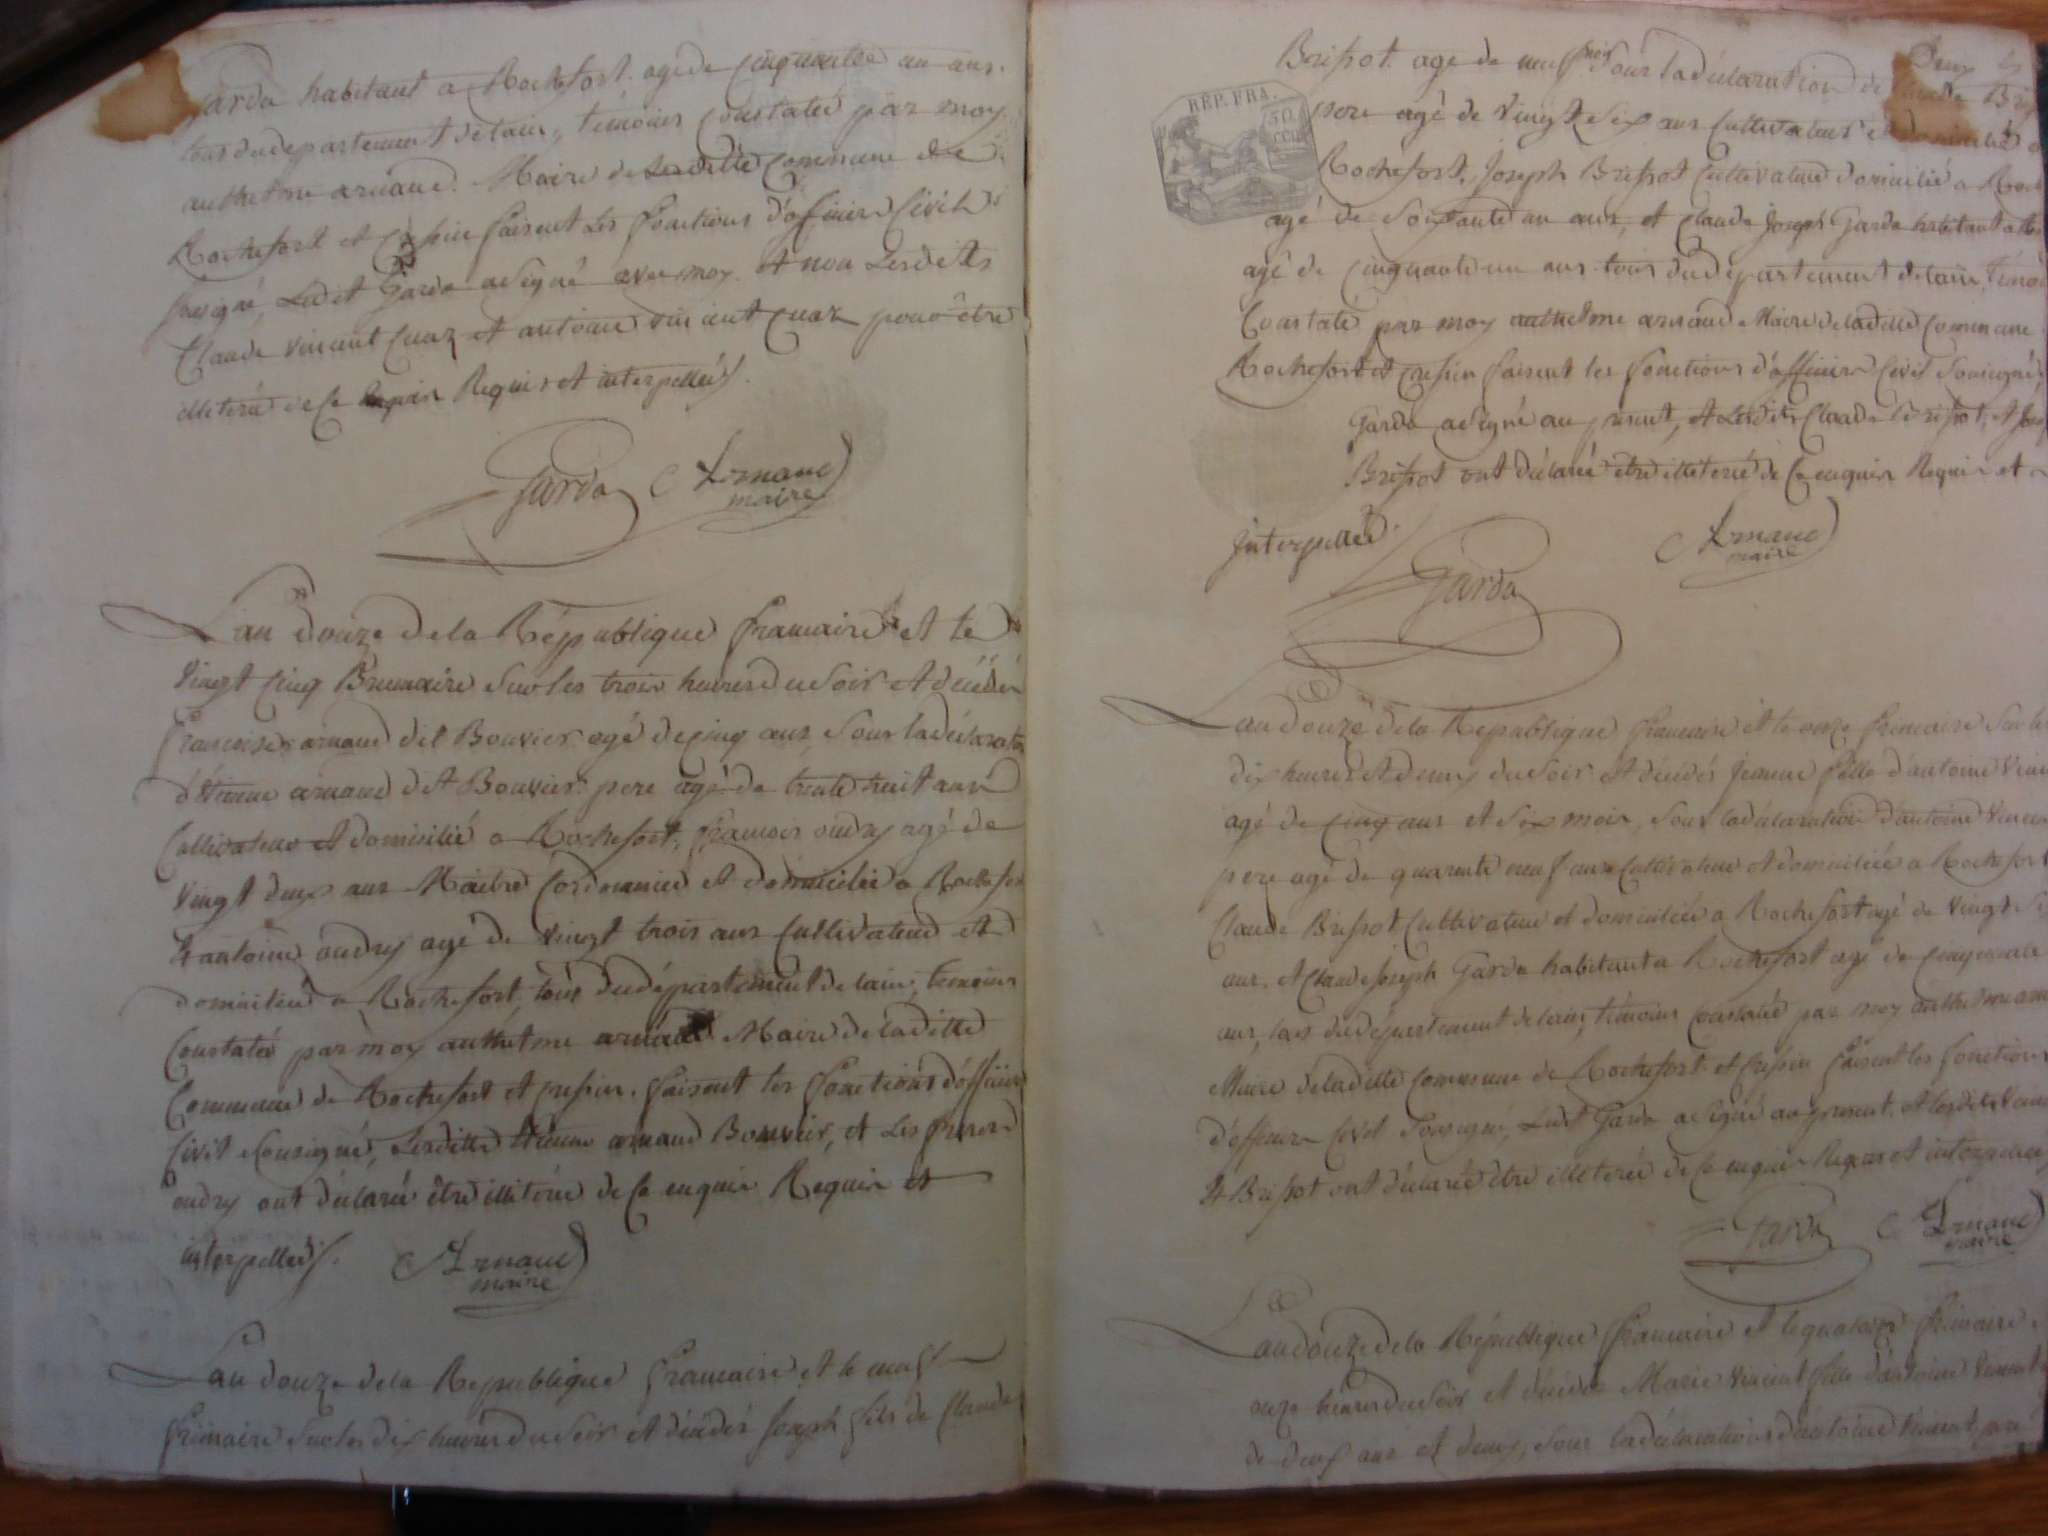 Garda habitant a Rochefort, agé de cinquante un ans
tous du departement de lain, témoins constatée par moy
anthelme arnaud Maire de Ladite commune de
Rochefort et Cressin faisent les fonctions d'officier Civil
sousigné, Ledit Garda a signé avec moy et non Lesdits
Claude vincent cuaz et antoine vincent cuaz pour être
illiteré de ce enquis Requis et interpellés.
Garda Arnaud
maire
Lan douze de la République francaise et le
vingt cinq Brumaire sur les trois heures du soir est décédée
francoise arnaud dit Bouvier agé de cinq ans, sous la déclaration
d'étienne arnaud dit Bouvier pere agé de trente huit ans
Cultivateur et domicilié a Rochefort, francois oudry agé de
vingt deux ans Maitre Cordonnier et domicilié a Rochefort
et antoine oudry agé de vingt trois ans Cultivateur et
domicilié a Rochefort, tous du département de lain, temoins
Constatée par moy anthelme arnaud Maire de ladite
Commune de Rochefort et cressin, faisent les fonctions d'officier
Civil sousigné, étienne arnaud Bouvier, et Les freres
oudry ont déclaré être illiteré de ce enquis Requis et
interpellés. Arnaud
maire
Lan douze de la Republique francaise et le neuf
frimaire sur les dix heures du soir est décédés joseph fils de Claude
Brissot agé de neuf mois sous la déclaration de Claude
RÉP. FRA.
50
CEN
pere agé de vingt six ans Cultivateur et domicilié a
Rochefort, Joseph Brissot Cultivateur domicilié a
agé de soixante un ans, et Claude joseph Garda habitant a
agé de cinquante un ans tous du département de lain,
Constatée par moy anthelme arnaud Maire de ladite commune
Rochefort et cressin faisent les fonctions d'officier Civil sousigné,
Garda a signé au présent, et Lesdits Claude Brissot, et
Brissot ont déclaré être illiteré de Ce enquis Requis et
interpellés.
Garda Arnaud
maire
Lan douze de la Republique francaise et le onze frimaire sur les
dix heures et demy du soir est décédés jeanne fille d'antoine
agé de cinq ans et six mois, sous la déclaration d'antoine
pere agé de quarante neuf ans Cultivateur et domiciliée a Rochefort
Claude Brissot Cultivateur et domiciliée a Rochefort agé de vingt
ans, et Claude joseph Garda habitant a Rochefort agé de cinquante
ans, tous du département de lain, témoins constatée par moy anthelme
Maire de ladite commune de Rochefort et cressin faisent les fonctions
d'officier Civil sousigné, Ledit Garda a signé au present, et lesdits
et Brissot ont déclarée être illiterée de Ce enquis Requis et
Garda Arnaud
maire
Lan douze de la République francaise et le quatorze frimaire
onze heures du soir est décédée Marie vincent fille d'antoine vincent
de deux ans et demy, sous la déclaration d'antoine vincent